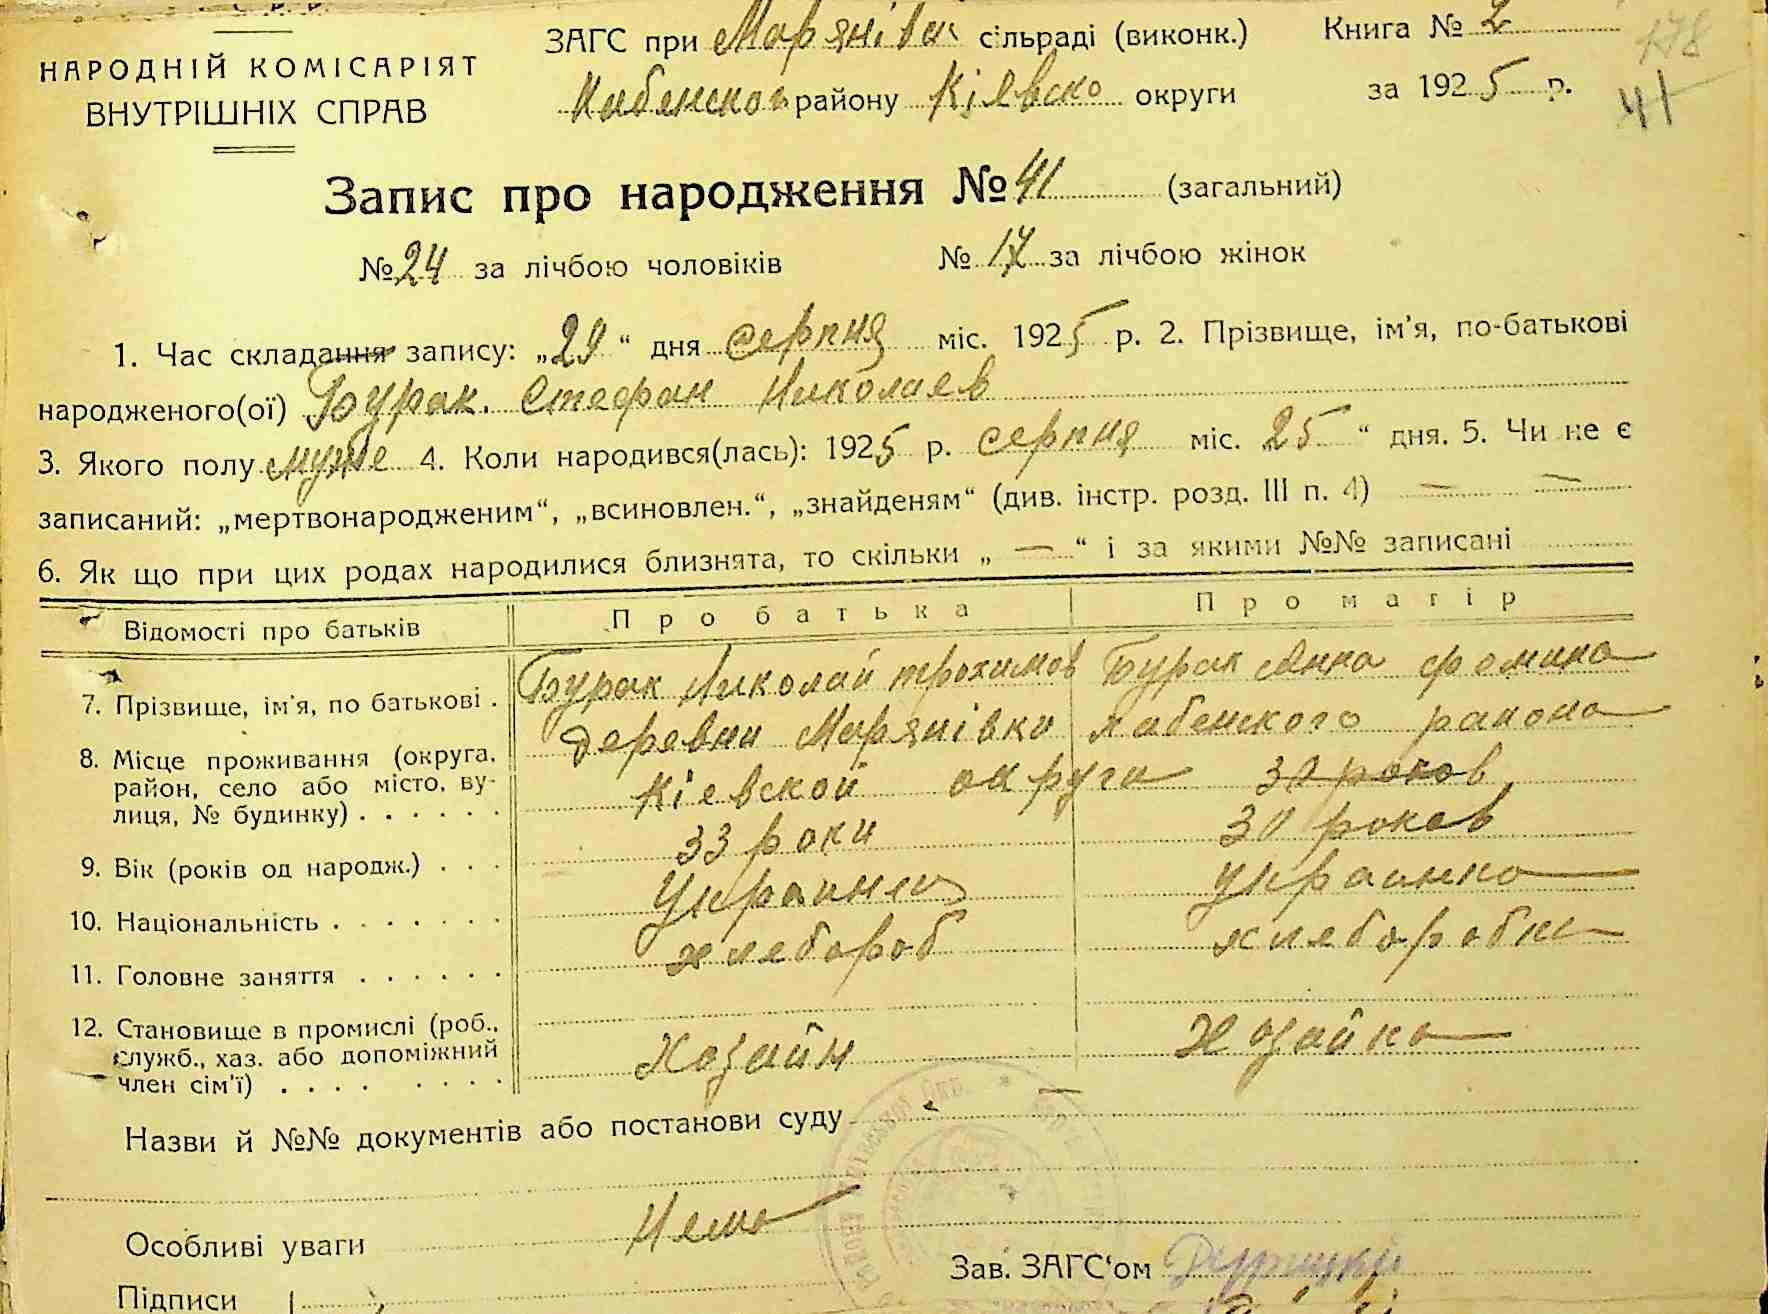 НАРОДНІЙ КОМІСАРІЯТ
ВНУТРІШНІХ СПРАВ
ЗАГС при Марянівск сільраді (виконк.) Книга № 2
району Кіевско округи за 1925 р.
178
41
Запис про народження № 41 (загальний)
№ 24 за лічбою чоловіків № 17 за лічбою жінок
1. Час складання запису: „29“ дня серпня міс. 1925 р. 2. Прізвище, ім'я, по-батькові
народженого(ої) Бурак. Стефан Николаев
3. Якого полу муже 4. Коли народився(лась): 1925 р. серпня міс. „25“ дня. 5. Чи не є
записаний: „мертвонародженим“, „всиновлен.“, „знайденям“ (див. інстр. розд. III п. 4) — —
6. Як що при цих родах народилися близнята, то скільки „ — “ і за якими №№ записані
Відомості про батьків Про батька Про матір
7. Прізвище, ім'я, по батькові . Бурак Николай трохимов Бурак Анна фомина
8. Місце проживання (округа, район, село або місто, вулиця, № будинку) . . . . . .
деревни Марянівки макенского района
Кіевской округи 30 роков
9. Вік (років од народж.) . . . 33 роки 30 роков
10. Національність . . . . . . . Украинец украинка
11. Головне заняття . . . . . . хлебороб хлеборобка
12. Становище в промислі (роб., служб., хаз. або допоміжний член сім'ї) . . . . . . . . Хозайн хозайка
Назви й №№ документів або постанови суду —
Особливі уваги Нема
Зав. ЗАГС'ом
Підписи